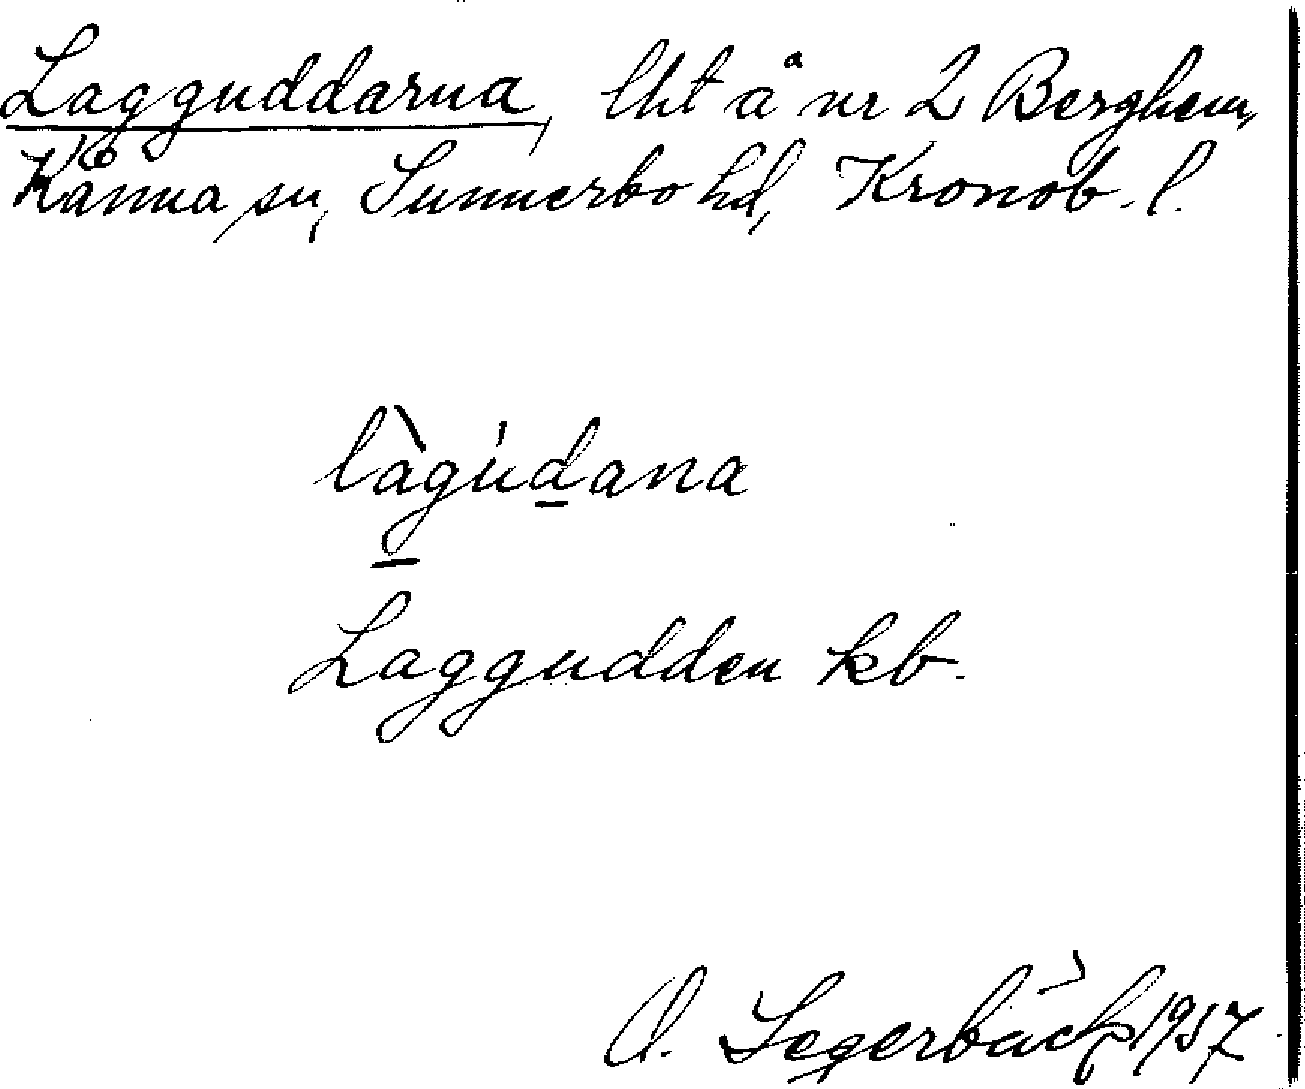 Lagguddarna, lht å nr 2 Berghem,
Kånna sn, Sunnerbo hd, Kronob. l.
làgúdana
Laggudden kb.
O. Segerbäck 1957